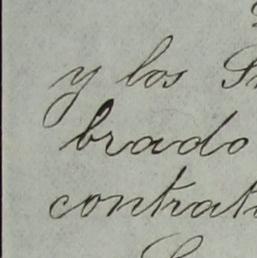 y los
brado
contrat